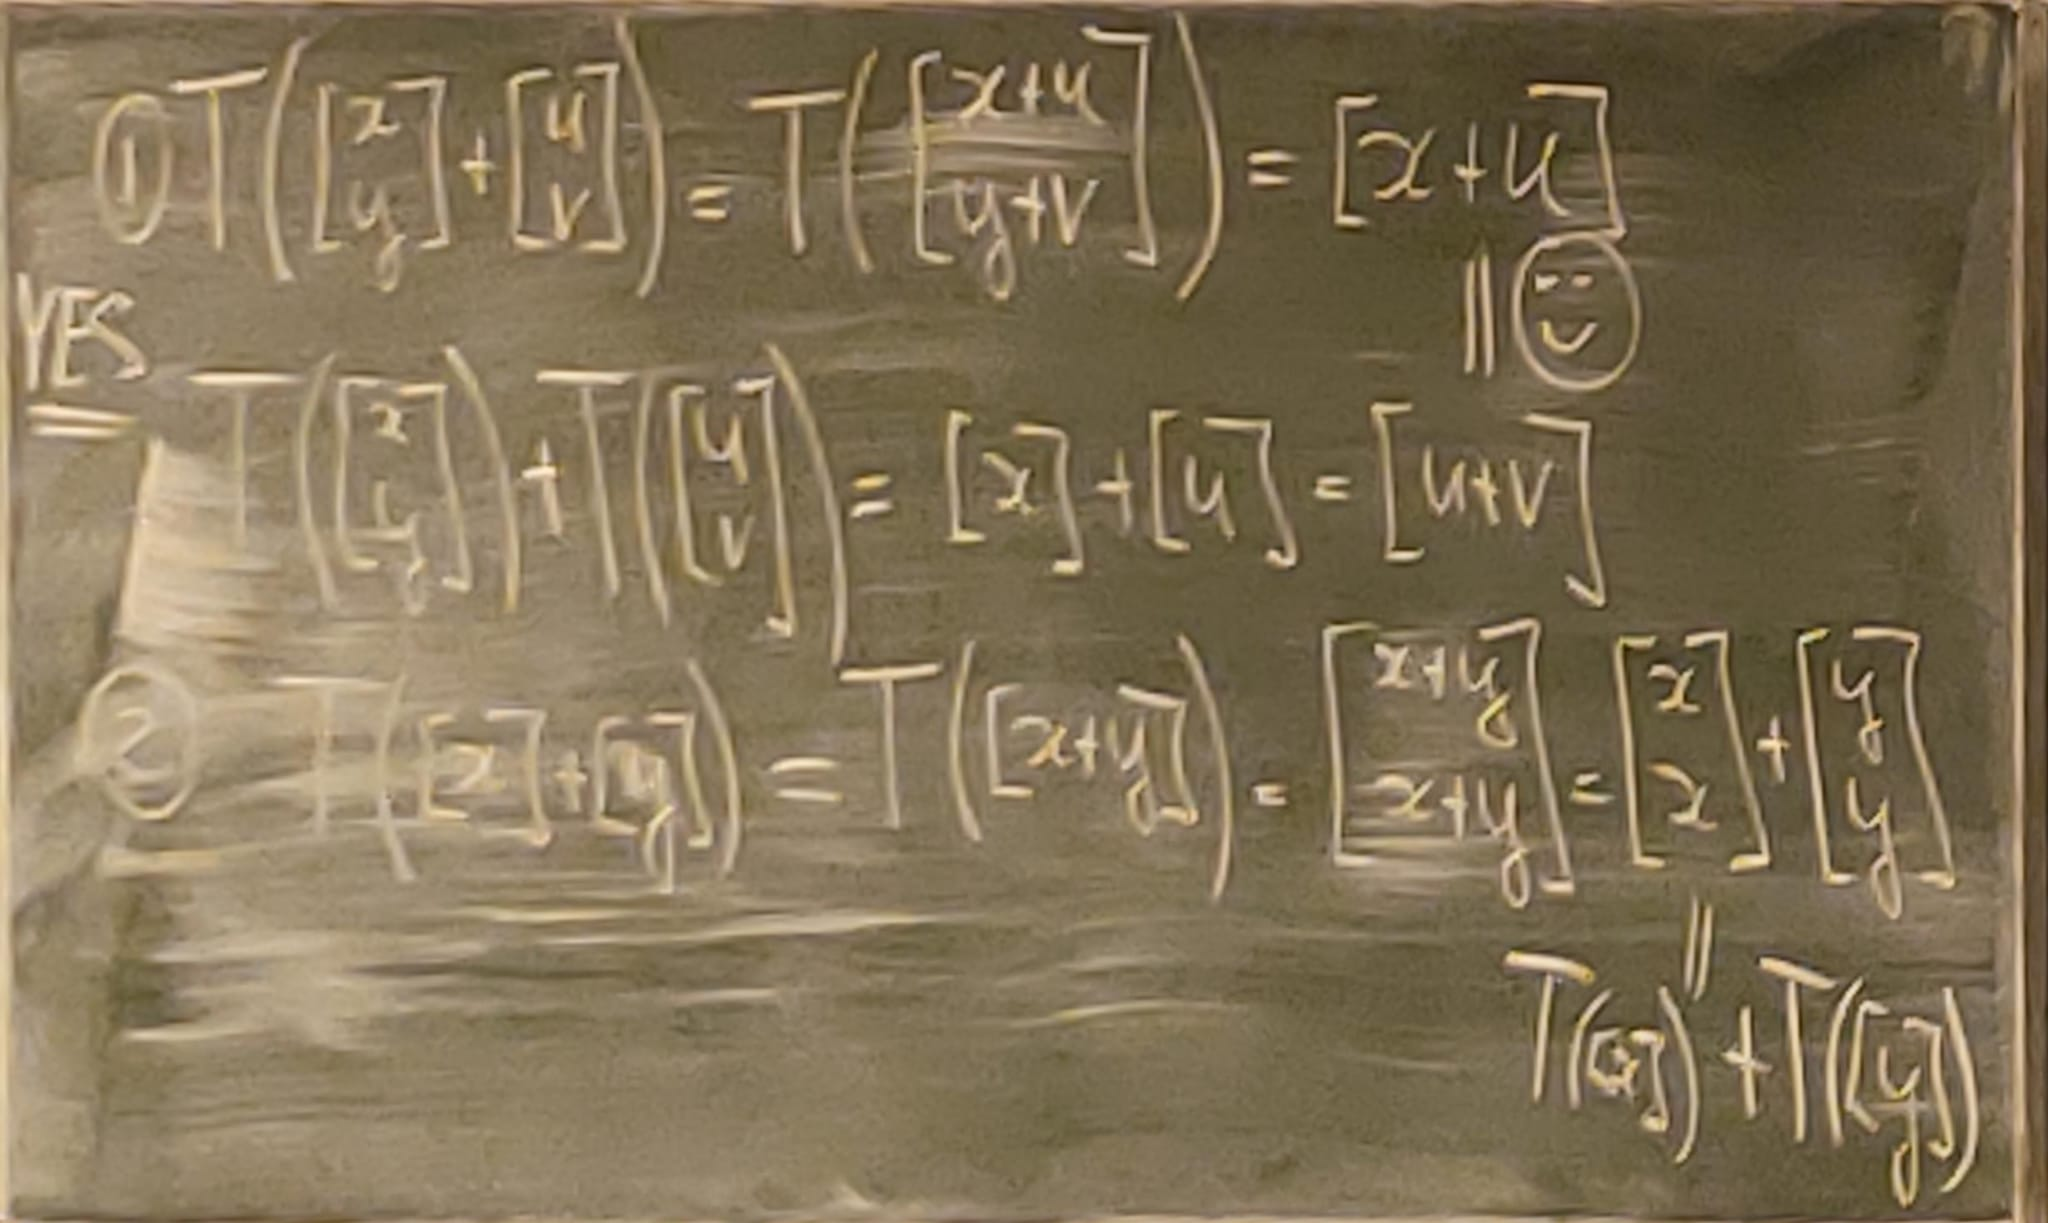 ① T([x y] + [u v]) = T([x+u y+v]) = [x+u]
||
YES
T([x y]) + T([u v]) = [x] + [u] = [u+v]
② T([x] + [y]) = T([x+y]) = [x+y x+y] = [x x] + [y y]
||
T([x]) + T([y])